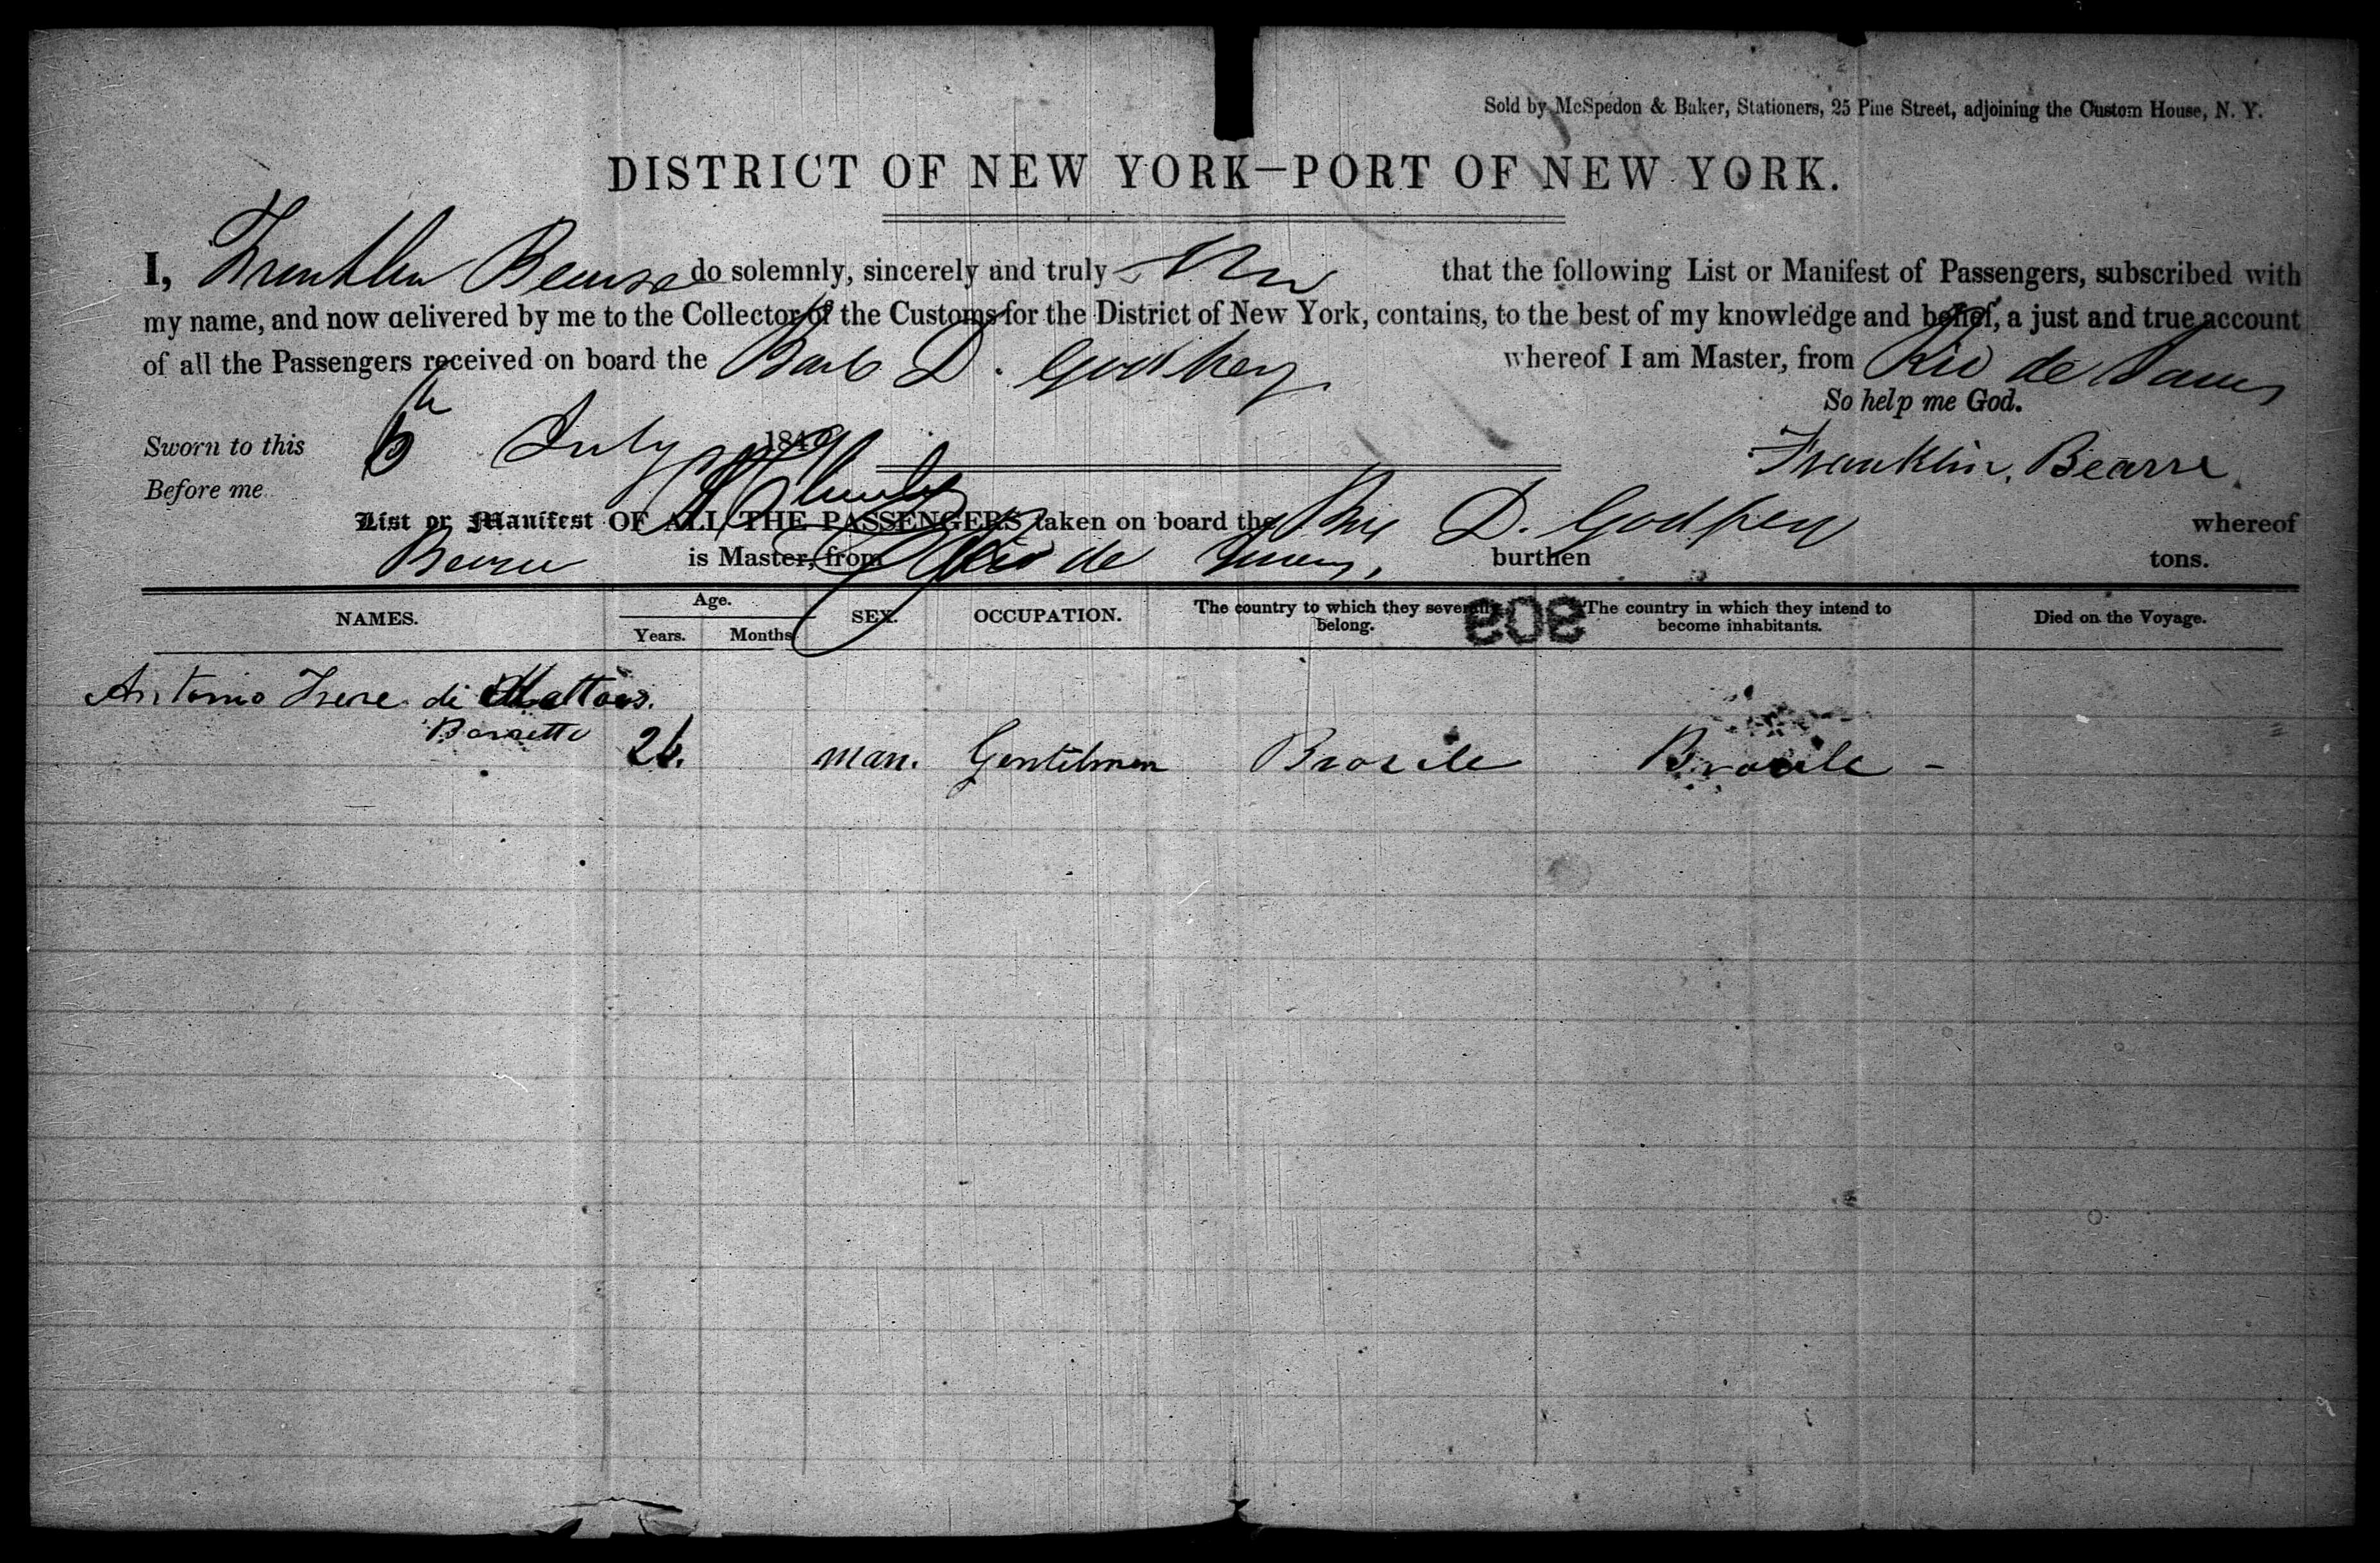 Sold by McSpedon & Baker, Stationers, 25 Pine Street, adjoining the Custom House, N. Y.
DISTRICT OF NEW YORK—PORT OF NEW YORK.
I, Franklin Bearse do solemnly, sincerely and truly that the following List or Manifest of Passengers, subscribed with
my name, and now delivered by me to the Collector of the Customs for the District of New York, contains, to the best of my knowledge and belief, a just and true account
of all the Passengers received on board the Bark D. Godfrey whereof I am Master, from Rio de Janeiro
So help me God.
Sworn to this 6th July 1849
Franklin Bearse
Before me
List or Manifest OF ALL THE PASSENGERS taken on board the D. Godfrey whereof
Bearse is Master, from Rio de Janeiro, burthen tons.
NAMES. Age. Years. Months SEX. OCCUPATION. The country to which they severally belong. The country in which they intend to become inhabitants. Died on the Voyage.
809
Antonio de Mattos.
Barrette 26. man. Gentilman Brasile Brasile -